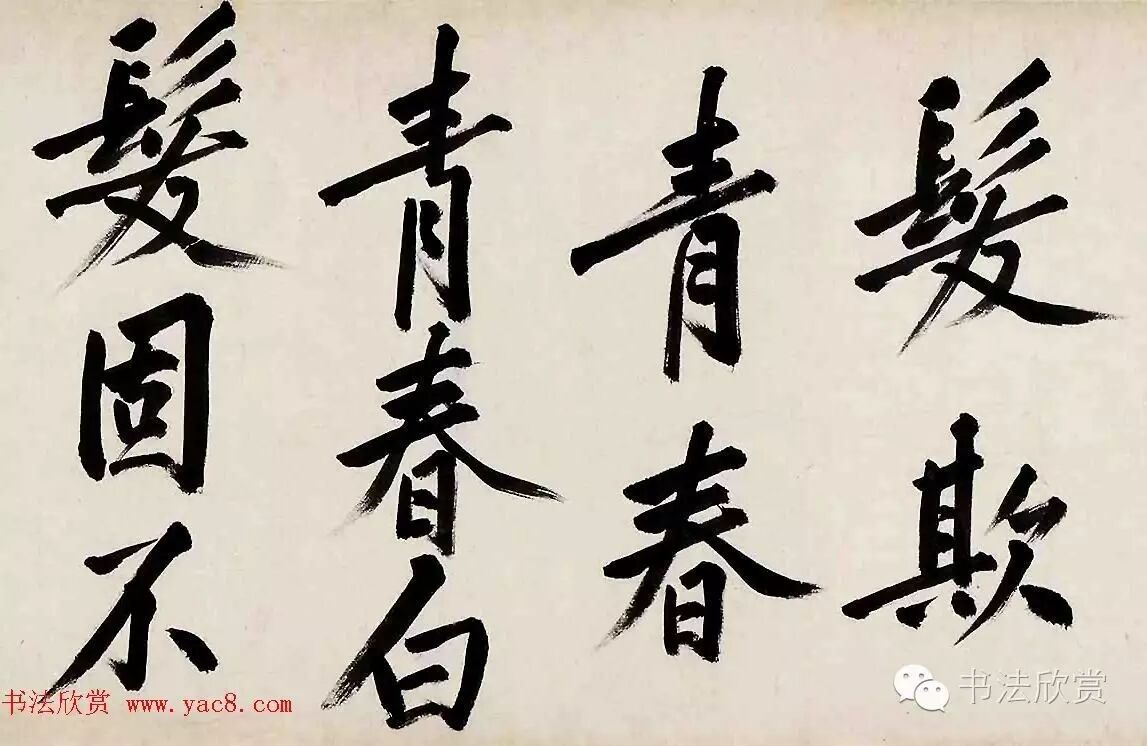 髮欺
青春
青春白
髮固不
书法欣赏 www.yac8.com
书法欣赏